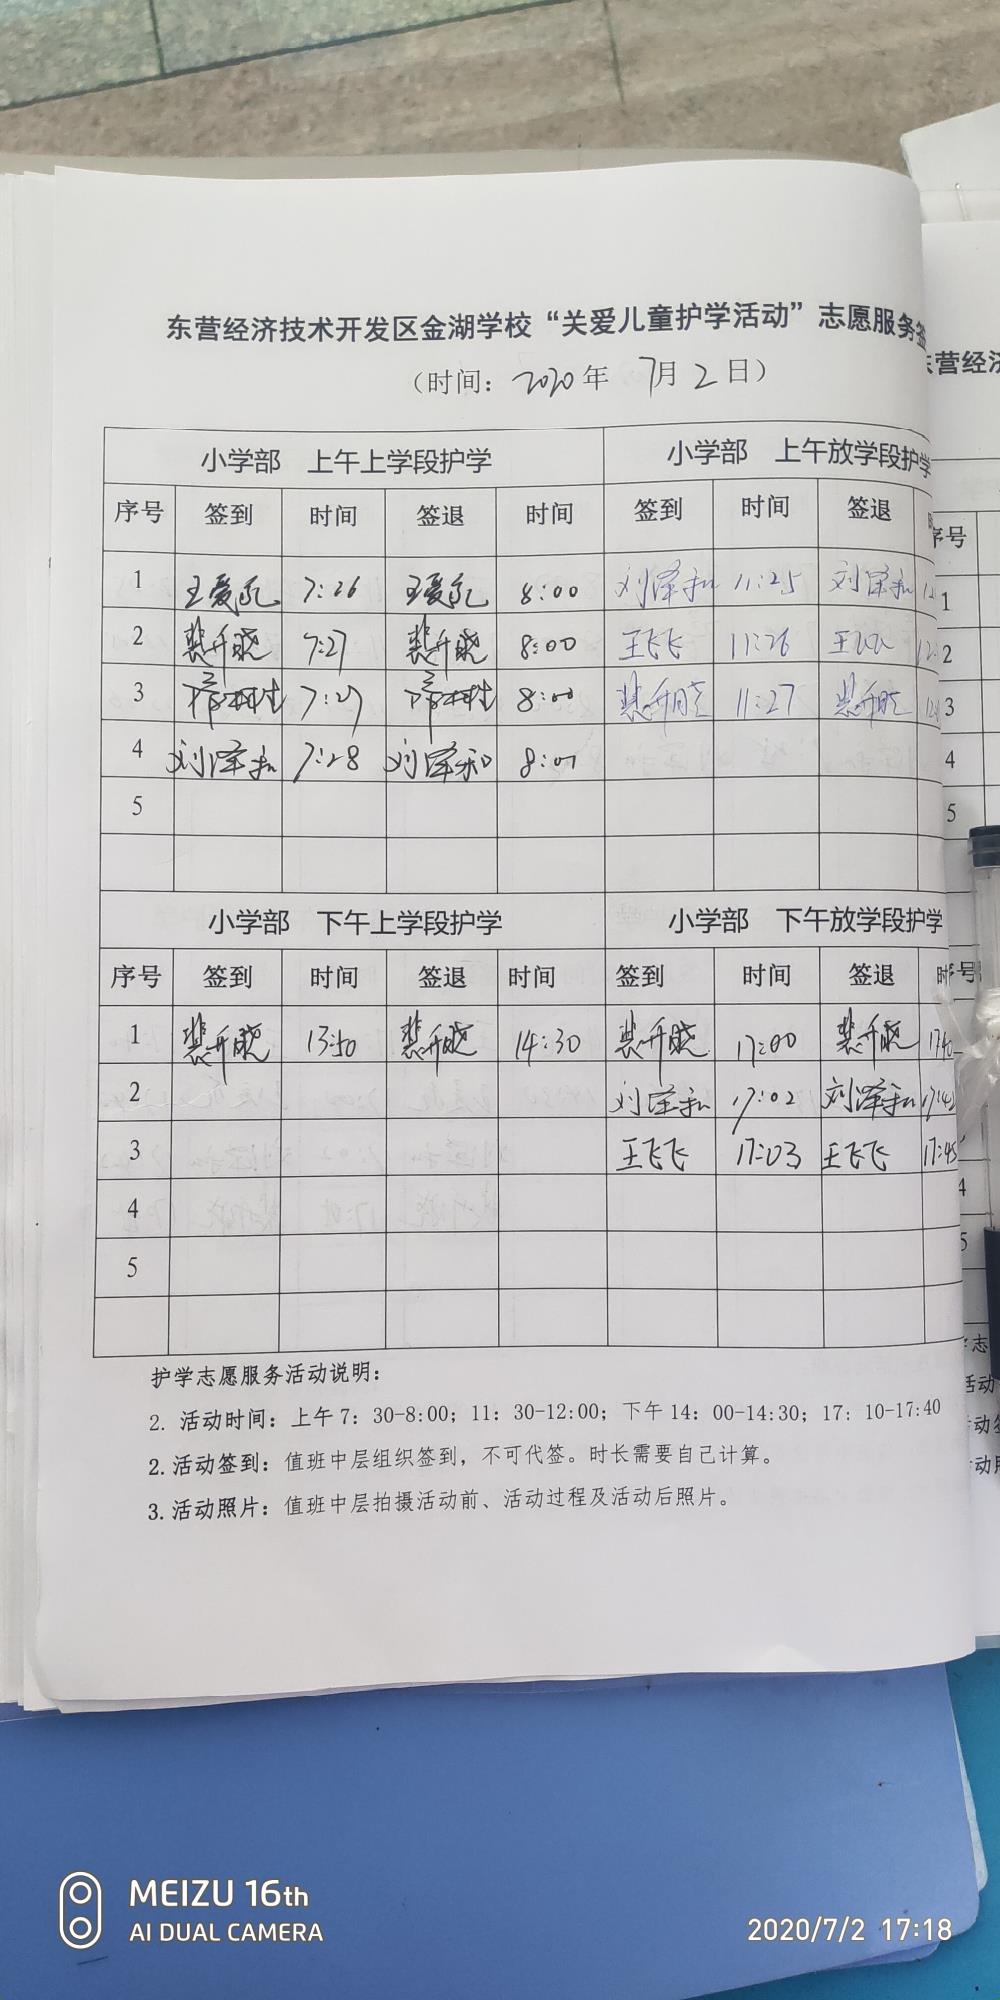 东营经济技术开发区金湖学校“关爱儿童护学活动”志愿服务签
（时间：2020年 7月2日）
小学部 上午上学段护学 小学部 上午放学段护学
序号 签到 时间 签退 时间 签到 时间 签退
1 7:26 8:00 刘泽和 11:25 刘泽和
2 裴升晓 7:27 裴升晓 8:00 王飞飞 11:26 王飞飞
3 7:27 8:00 裴升晓 11:27 裴升晓
4 刘泽和 7:28 刘泽和 8:01
5
小学部 下午上学段护学 小学部 下午放学段护学
序号 签到 时间 签退 时间 签到 时间 签退 时
1 裴升晓 13:50 裴升晓 14:30 裴升晓 17:00 裴升晓 17:40
2 刘泽和 17:02 刘泽和 17:42
3 王飞飞 17:03 王飞飞 17:45
4
5
护学志愿服务活动说明：
2. 活动时间：上午7：30-8:00；11：30-12:00；下午14：00-14:30；17：10-17:40
2.活动签到：值班中层组织签到，不可代签。时长需要自己计算。
3.活动照片：值班中层拍摄活动前、活动过程及活动后照片。
东营经济
序号
1
2
3
4
5
MEIZU 16th
AI DUAL CAMERA
2020/7/2 17:18